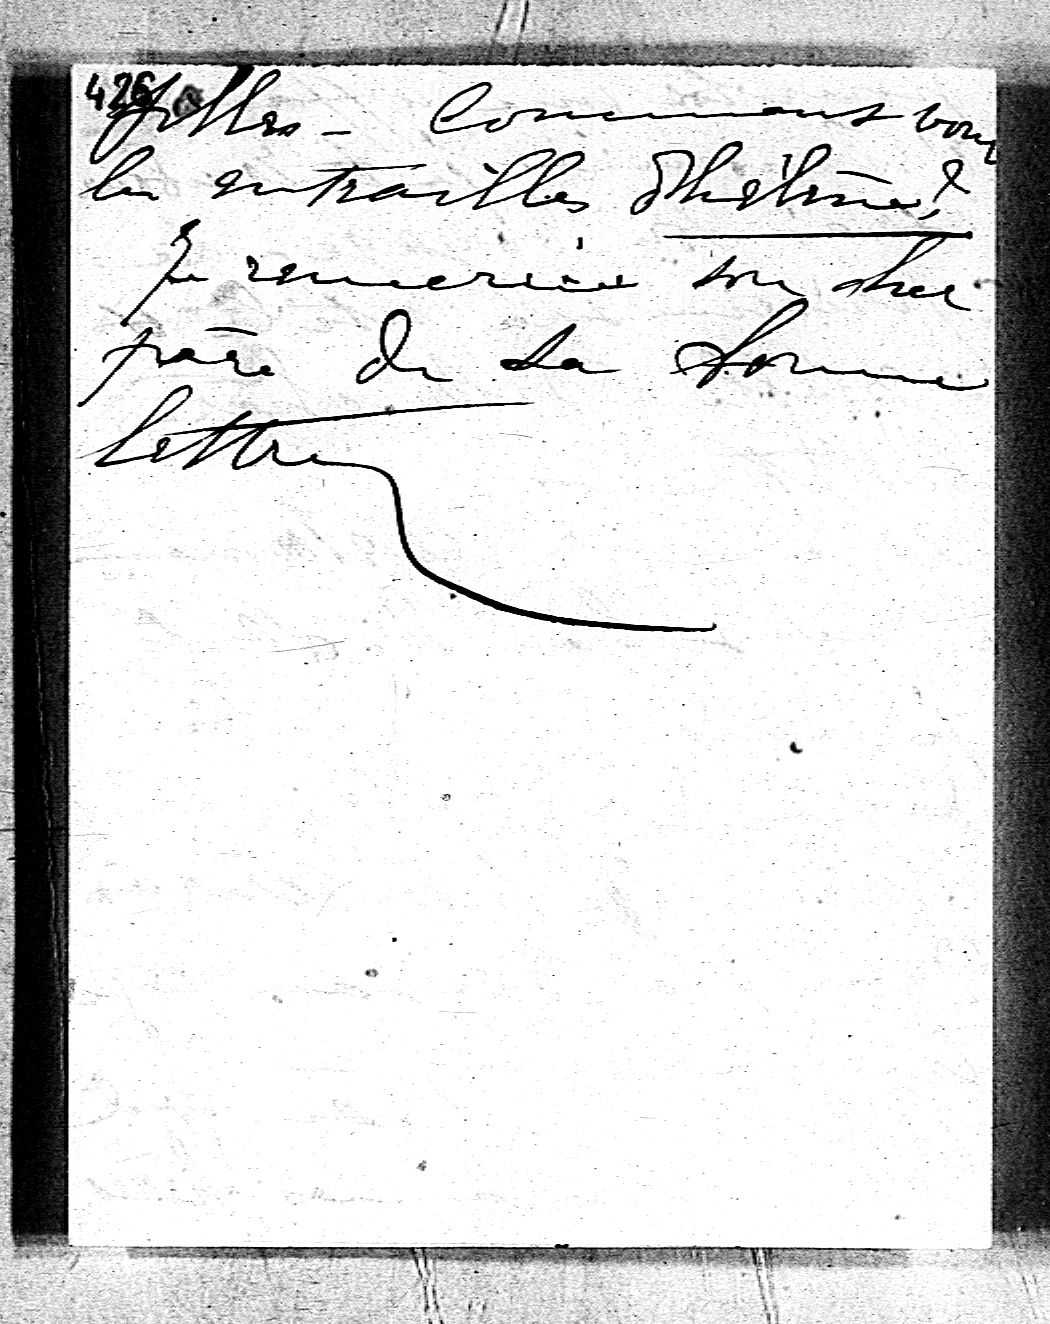 426
filles — Comment vont
les entrailles d'hélène?
Je remercie son cher
père de sa bonne
lettre